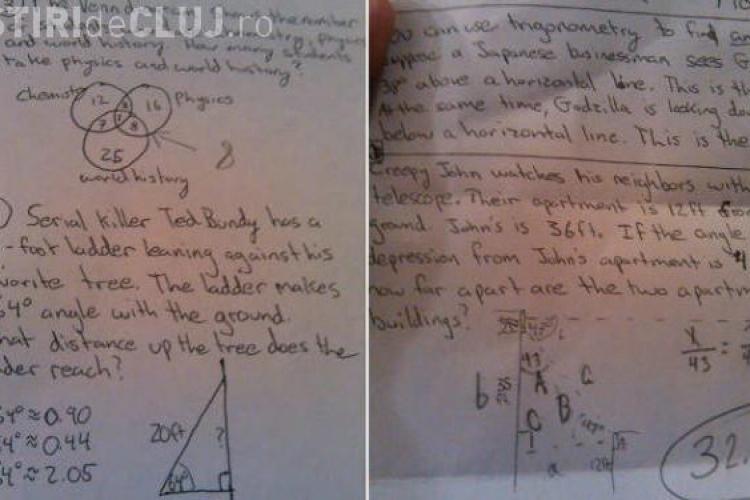 STIRIdeCLUJ.ro
Venn d the number
physics
and world history. How many students
take physics and world history?
chemist
12
16
physics
7
8
25
8
world history
Serial killer Ted Bundy has a
-foot ladder leaning against his
vorite tree. The ladder makes
64° angle with the ground.
hat distance up the tree does the
dder reach?
64° ≈ 0.90
64° ≈ 0.44
64° ≈ 2.05
20ft
?
64°
ou can use trigonometry to find
uppose a Japanese businessman sees G
38° above a horizontal line. This is th
At the same time, Godzilla is looking do
below a horizontal line. This is the
Creepy John watches his neighbors with
telescope. Their apartment is 12ft
ground. John's is 36ft. If the angle
depression from John's apartment is
how far apart are the two apartm
buildings?
x
43
=
43
b
A
B
C
a
12ft
32.